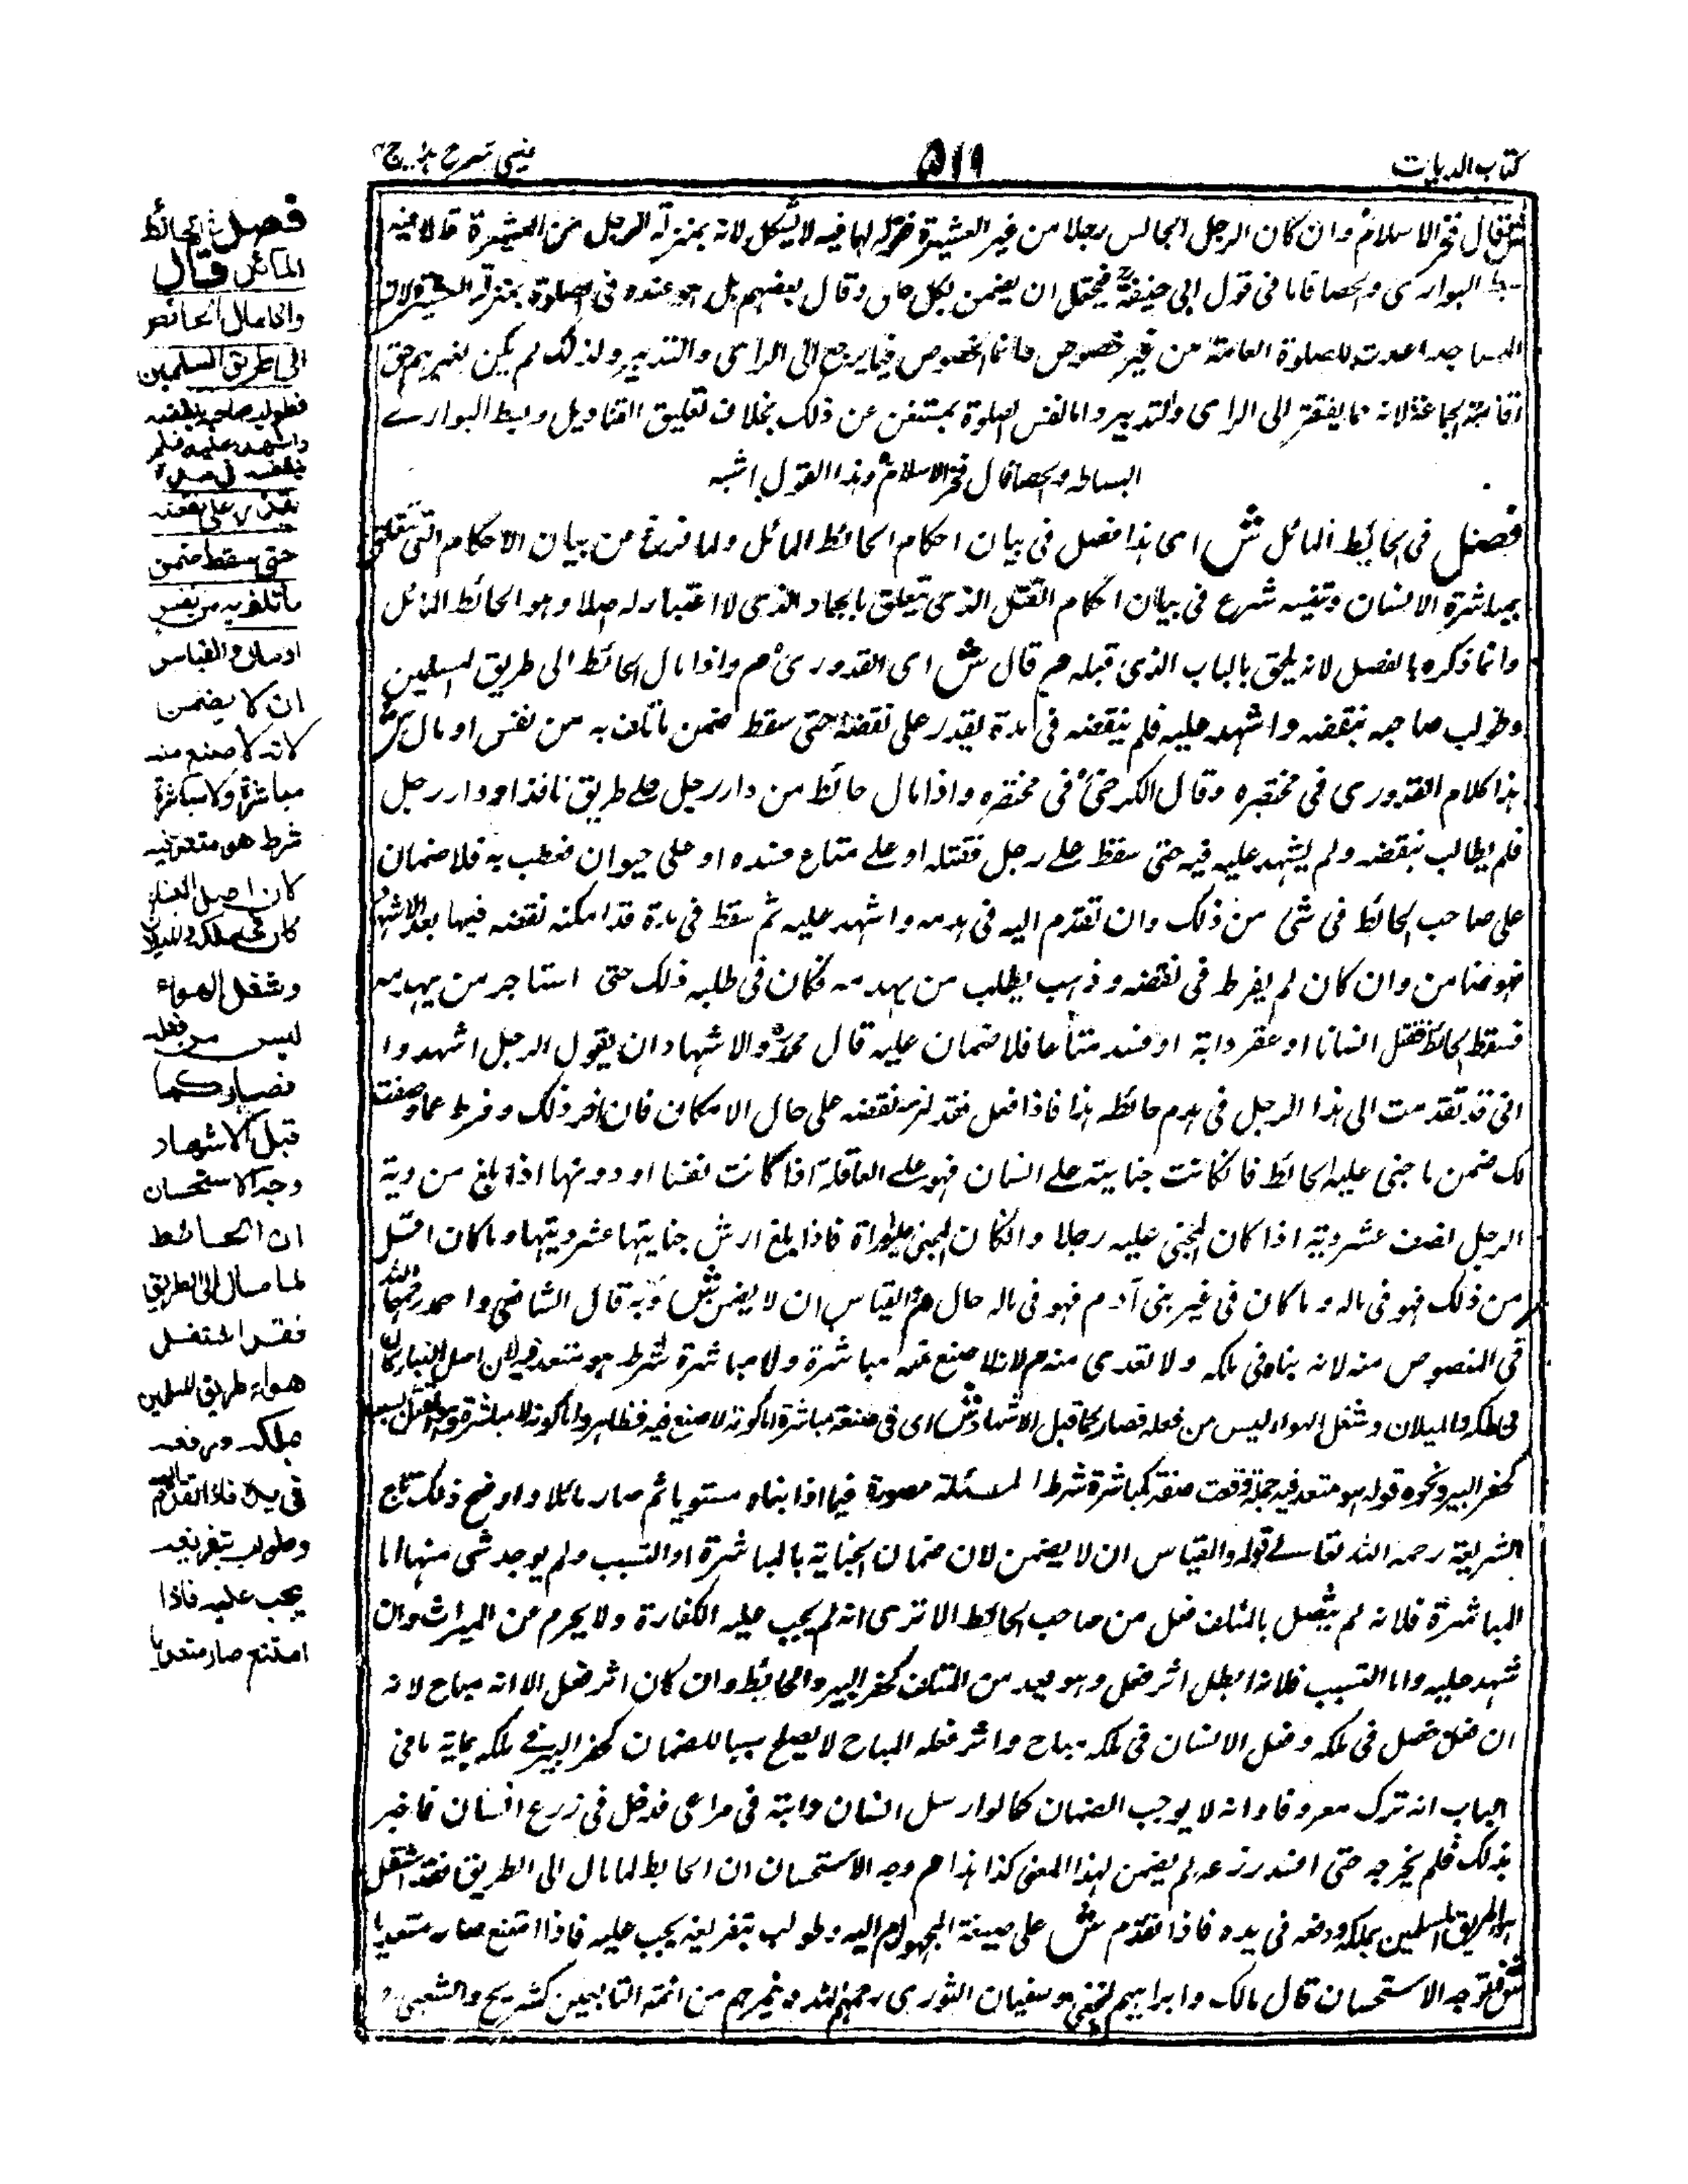 كتاب الديات
٥١٩
عینی شرح ج۴
قال فخر الاسلام وان كان الرجل الجالس رجلا من غير العشيرة لا يشكل لانه بمنزلة الرجل من العشيرة
البوارى والحصا فاما فى قول ابى حنيفة فيحتمل ان يضمن بكل حال وقال بعضهم بل هو عنده فى الصلوة بمنزلة
المساجد اعدت للصلوة العامة من غير خصوص وانما الخصوص فيما يرجع الى الراى والتدبير ولذلك لم يكن لغيرهم حق
اقامة الجماعة لانه مما يفتقر الى الراى والتدبير واما نفس الصلوة بمستغن عن ذلك بخلاف تعليق القناديل وبسط البوارے
البساط والحصا قال فخر الاسلام وهذا القول اشبه
فصل فى الحائط المائل ش اى هذا فصل فى بيان احكام الحائط المائل ولما فرغ من بيان الاحكام التى تتعلق
بمباشرة الانسان وتسببه شرع فى بيان احكام القتل الذى يتعلق بالجماد الذى لا اعتبار له اصلا وهو الحائط المائل
وانما ذكره بالفصل لانه يلحق بالباب الذى قبله م قال ش اى القدورى م واذا مال الحائط الى طريق المسلمين
وطولب صاحبه بنقضه واشهد عليه فلم ينقضه فى مدة يقدر على نقضه حتى سقط ضمن ما تلف به من نفس او مال ش
هذا كلام القدورى فى مختصره وقال الكرخى فى مختصره واذا مال حائط من دار رجل على طريق نافذ او دار رجل
فلم يطالب بنقضه ولم يشهد عليه فيه حتى سقط على رجل فقتله او على متاع فسده او على حيوان فعطب به فلا ضمان
على صاحب الحائط فى شئ من ذلك وان تقدم اليه فى هدمه واشهد عليه ثم سقط فى مدة قد امكنه نقضه فيها بعد الاشهاد
فهو ضامن وان كان لم يفرط فى نقضه وذهب يطلب من يهدمه فكان فى طلبه ذلك حتى استاجر من يهدمه
فسقط الحائط فقتل انسانا او عقر دابة او فسد متاعا فلا ضمان عليه قال محمد والاشهاد ان يقول الرجل اشهدوا
انى قد تقدمت الى هذا الرجل فى هدم حائطه هذا فاذا فعل فقد لزمه نقضه على حال الامكان فان اخر ذلك وفرط عما وصفت
لك ضمن ما جنى عليه الحائط فان كانت جنايته على انسان فهو على العاقلة اذا كانت نفسا او دونها اذا بلغ من دية
الرجل نصف عشر دية اذا كان المجنى عليه رجلا وان كان المجنى عليه امراة فاذا بلغ ارش جنايتها عشر ديتها وما كان اقل
من ذلك فهو فى ماله وما كان فى غير بنى آدم فهو فى ماله حال م والقياس ان لا يضمن ش وبه قال الشافعى واحمد رحمهما الله
فى المنصوص منه لانه بناه فى ملكه ولا تعدى منه م لانه لا صنع منه مباشرة ولا مباشرة شرط هو متعد فيه لان اصل البناء كان
فى ملكه والميلان وشغل الهواء ليس من فعله فصار كما قبل الاشهاد ش اى فى صنعة مباشرة اما كونه لا صنع فيه فظاهر واما كونه لا مباشرة
كحفر البير ونحوه قوله هو متعد فيه جملة وقعت صفة لمباشرة شرط المسئلة مصورة فيما اذا بناه مستويا ثم صار مائلا واوضح ذلك تاج
الشريعة رحمه الله تعالى قوله والقياس ان لا يضمن لان ضمان الجناية بالمباشرة او التسبب ولم يوجد شى منها اما
المباشرة فلانه لم يتصل بالمتلف فعل من صاحب الحائط الا ترى انه لم يجب عليه الكفارة ولا يحرم عن الميراث وان
شهد عليه واما التسبب فلانه ابطل اثر فعل وهو بعيد من المتلف كحفر البير والحائط وان كان اثر فعل الا انه مباح لانه
ان فعل حصل فى ملكه وفعل الانسان فى ملكه مباح واثر فعله المباح لا يصلح سببا للضمان كحفر البير فى ملكه بما فى
الباب انه ترك معروفا وانه لا يوجب الضمان كما لو ارسل انسان دابته فى مراعى فدخل فى زرع انسان فاخبر
بذلك فلم يخرجه حتى افسد زرعه لم يضمن لهذا المعنى كذا هذا م وجه الاستحسان ان الحايط لما مال الى الطريق فقد اشتغل
هواء طريق المسلمين بملكه ودفعه فى يده فاذا تقدم ش على صيغة المجهول م اليه وطولب بتفريغه يجب عليه فاذا امتنع صار متعديا
وجه الاستحسان قال مالك وابراهيم النخعى وسفيان الثورى رحمهم الله وغيرهم من ائمة التابعين كشريح والشعبى
فصل فى الحائط
المائل قال
واذا مال الحائط
الى طريق المسلمين
فطولب صاحبه بنقضه
واشهد عليه فلم
ينقضه فى مدة
يقدر على نقضه
حتى سقط ضمن
ما تلف به من نفس
او مال والقياس
ان لا يضمن
لانه لا صنع منه
مباشرة ولا مباشرة
شرط هو متعد فيه
كان اصل البناء
كان فى ملكه والميلان
وشغل الهواء
ليس من فعله
فصار كما
قبل الاشهاد
وجه الاستحسان
ان الحائط
لما مال الى الطريق
فقد اشتغل
هواء طريق المسلمين
بملكه ورفعه
فى يده فاذا تقدم اليه
وطولب بتفريغه
يجب عليه فاذا
امتنع صار متعديا